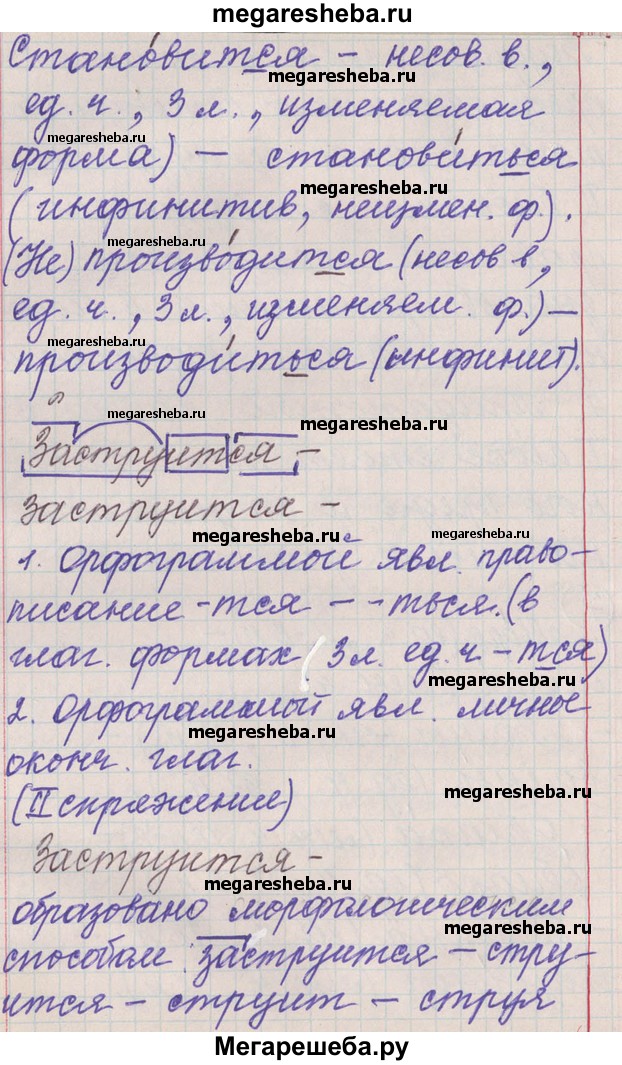 megaresheba.ru
Становится – несов. в.,
megaresheba.ru
ед. ч., 3 л., изменяемая
megaresheba.ru
форма) – становиться
megaresheba.ru
(инфинитив, неизмен. ф.).
megaresheba.ru
(Не) производится (несов в,
megaresheba.ru
ед. ч., 3 л., изменяем. ф.) –
megaresheba.ru
производиться (инфинит).
megaresheba.ru
megaresheba.ru
Заструится –
megaresheba.ru
заструится –
megaresheba.ru
megaresheba.ru
1. Орфограммой явл. право-
писание -тся – -ться. (в
глаг. формах (3 л. ед. ч – тся)
megaresheba.ru
2. Орфограммой явл. личное
megaresheba.ru
оконч. глаг.
megaresheba.ru
(II спряжение)
Заструится –
megaresheba.ru
образовано морфологическим
megaresheba.ru
способом заструится – стру-
ится – струит – струя
megaresheba.ru
Мегарешеба.ру